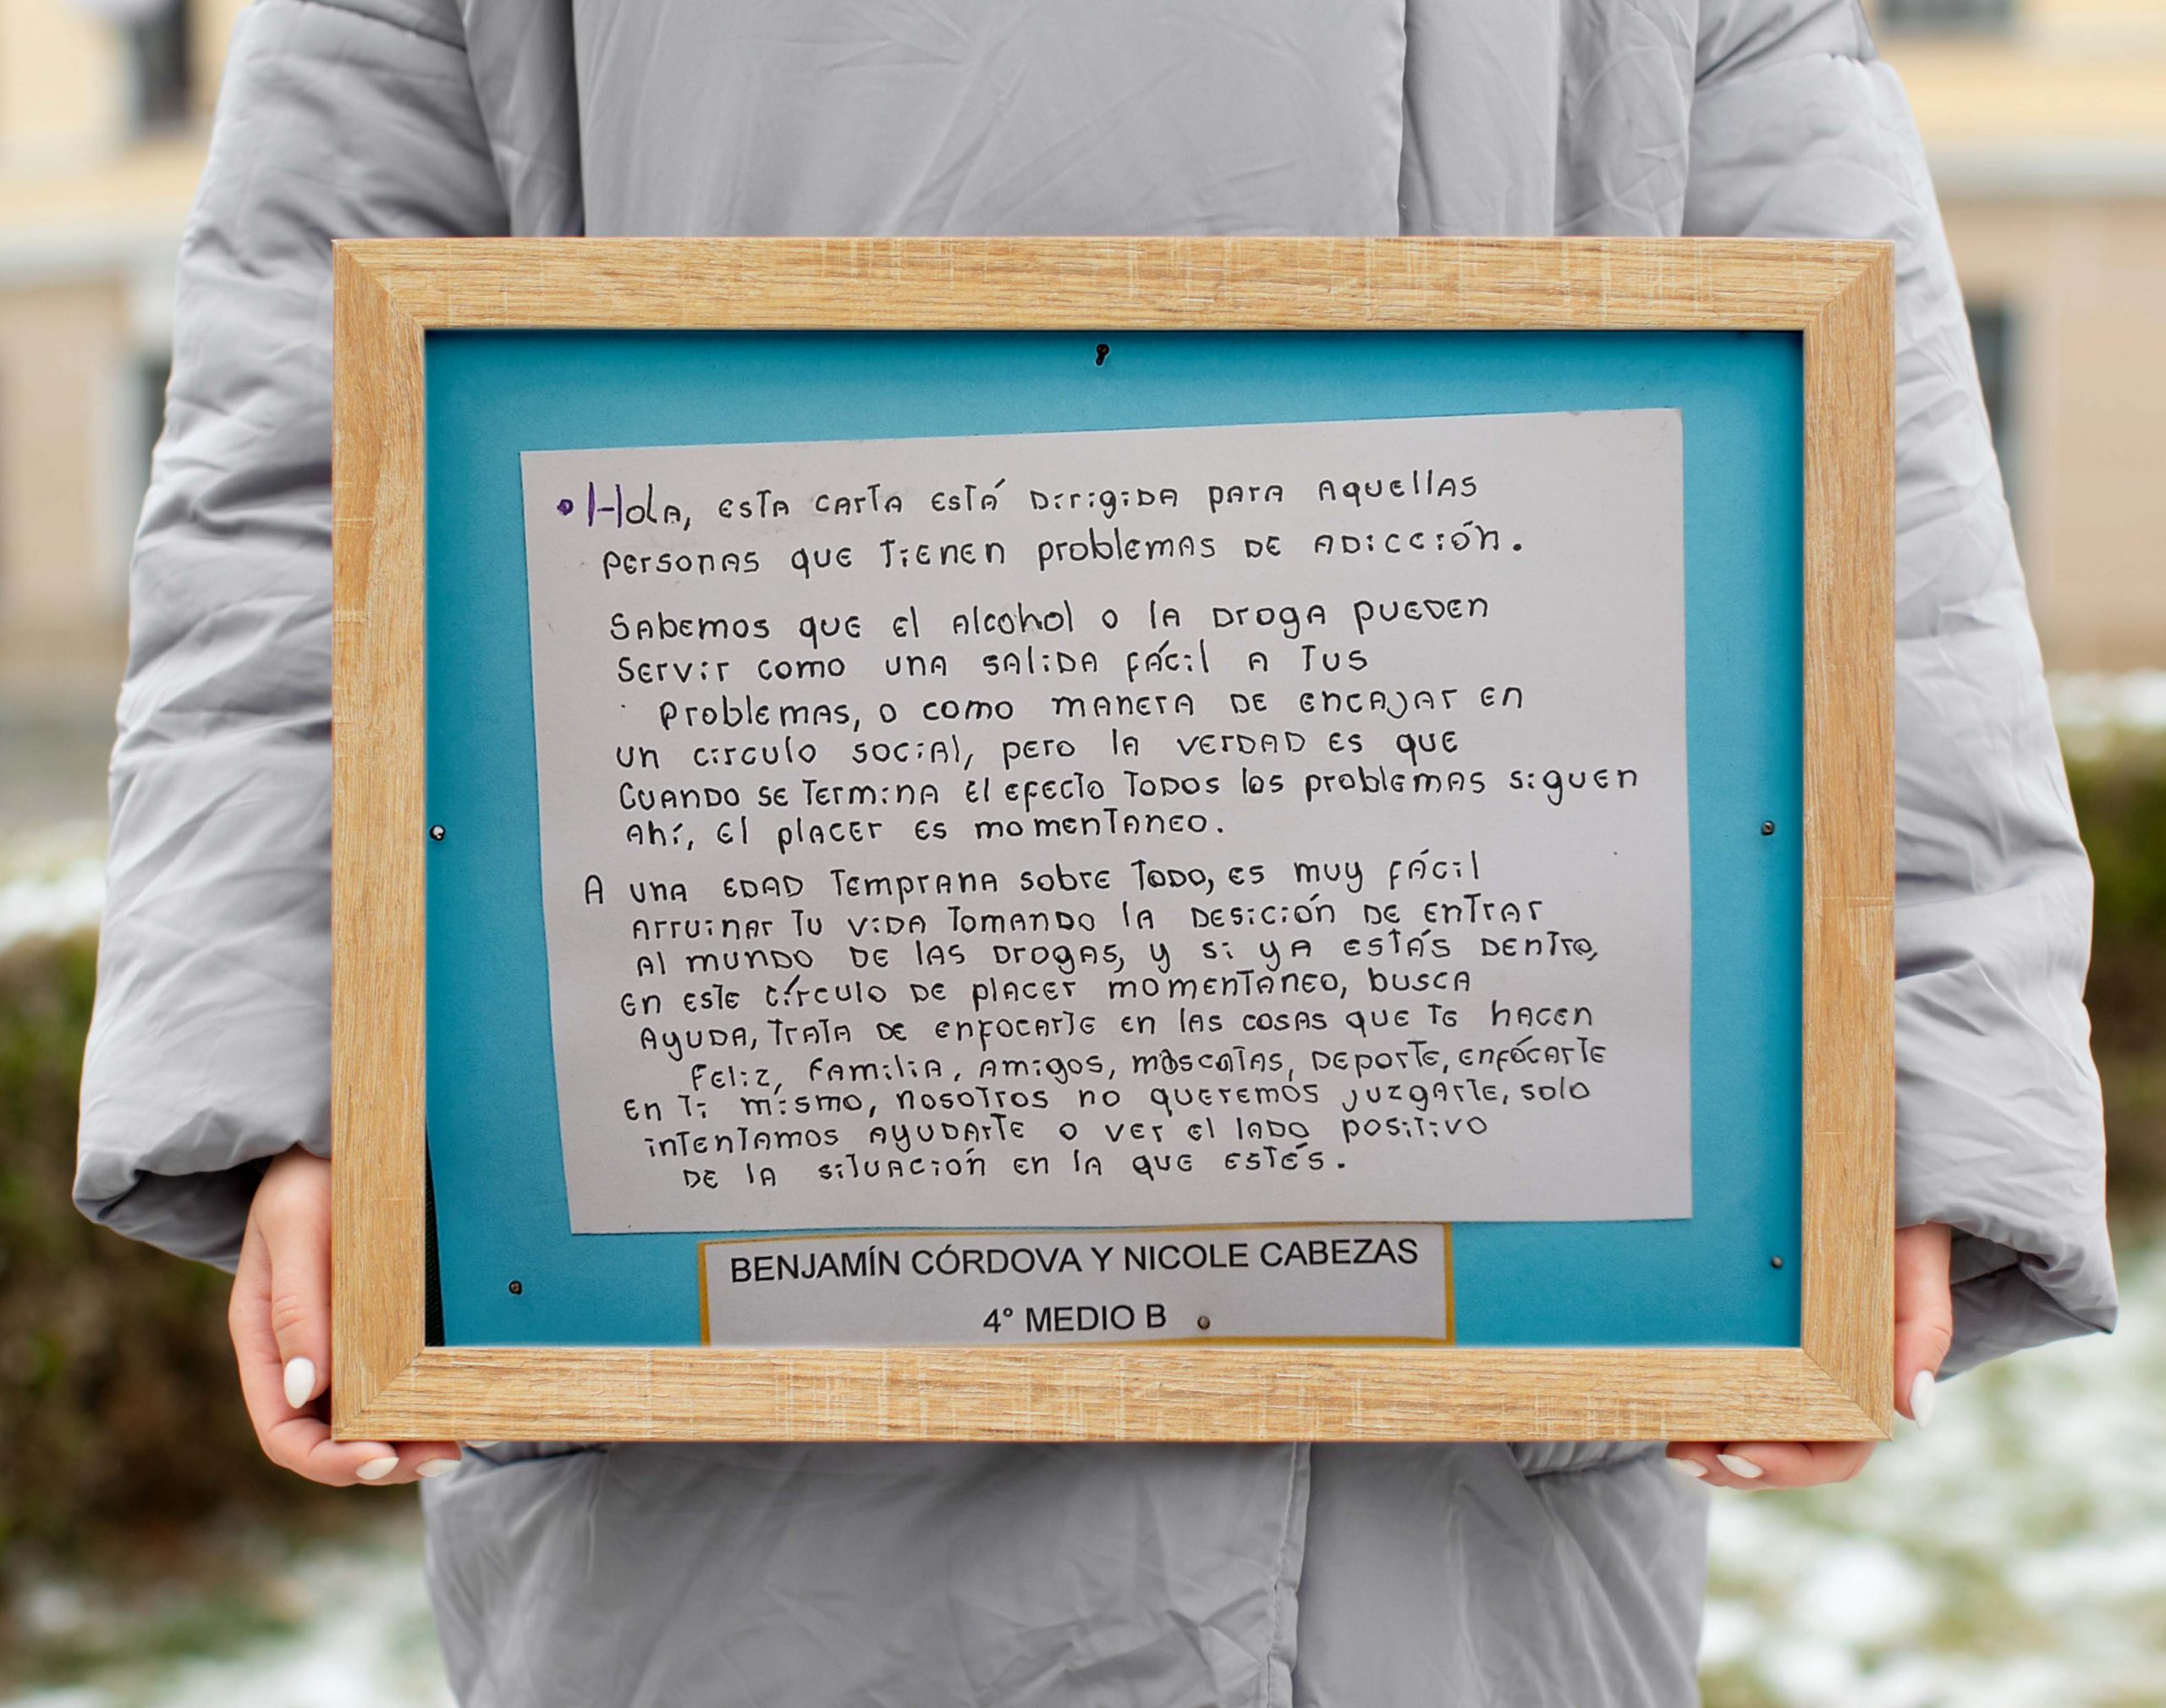 • Hola, esta carta está dirigida para aquellas
personas que tienen problemas de adicción.
Sabemos que el alcohol o la droga pueden
servir como una salida fácil a tus
problemas, o como manera de encajar en
un circulo social, pero la verdad es que
cuando se termina el efecto todos los problemas siguen
ahí, el placer es momentaneo.
A una edad temprana sobre todo, es muy fácil
arruinar tu vida tomando la desición de entrar
al mundo de las drogas, y si ya estás dentro,
en este círculo de placer momentaneo, busca
ayuda, trata de enfocarte en las cosas que te hacen
feliz, familia, amigos, mascotas, deporte, enfócarte
en ti mismo, nosotros no queremos juzgarte, solo
intentamos ayudarte o ver el lado positivo
de la situación en la que estés.
BENJAMÍN CÓRDOVA Y NICOLE CABEZAS
4° MEDIO B